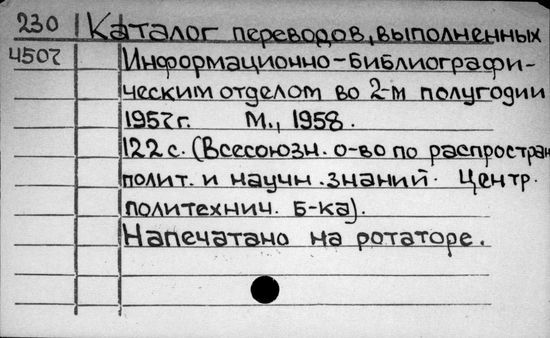 230 Каталог переводов, выполненных
4507 Информационно-библиографи-
ческим отделом во 2-м полугодии
1957г. М., 1958.
122 с. (Всесоюзн. о-во по распростран
полит. и научн. знаний. Центр.
политехнич. б-ка).
Напечатано на ротаторе.